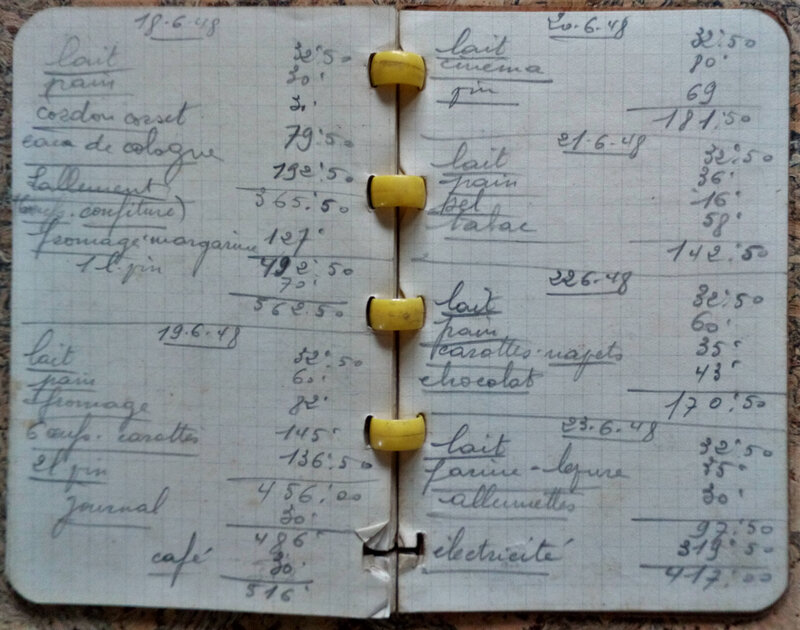 18-6-48
lait 32:50
pain 30'
cordon corset 31'
eau de cologne 79:50
Lallement 192:50
365:50
(oeufs. confiture)
fromage-margarine 127'
492:50
1 l. pin 70'
562:50
19-6-48
lait 32:50
pain 60'
fromage 82'
6 oeufs. carottes 145'
2l pin 136:50
456:00
journal 30'
486'
café 30'
516'
20-6-48
lait 32:50
cinéma 80'
pin 69
181:50
21-6-48
lait 32:50
pain 36'
sel 16'
tabac 58'
142:50
22-6-48
lait 32:50
pain 60'
carottes-navets 35'
chocolat 43'
170:50
23-6-48
lait 32:50
farine-levure 35'
allumettes 30'
97:50
électricité 319:50
417:00